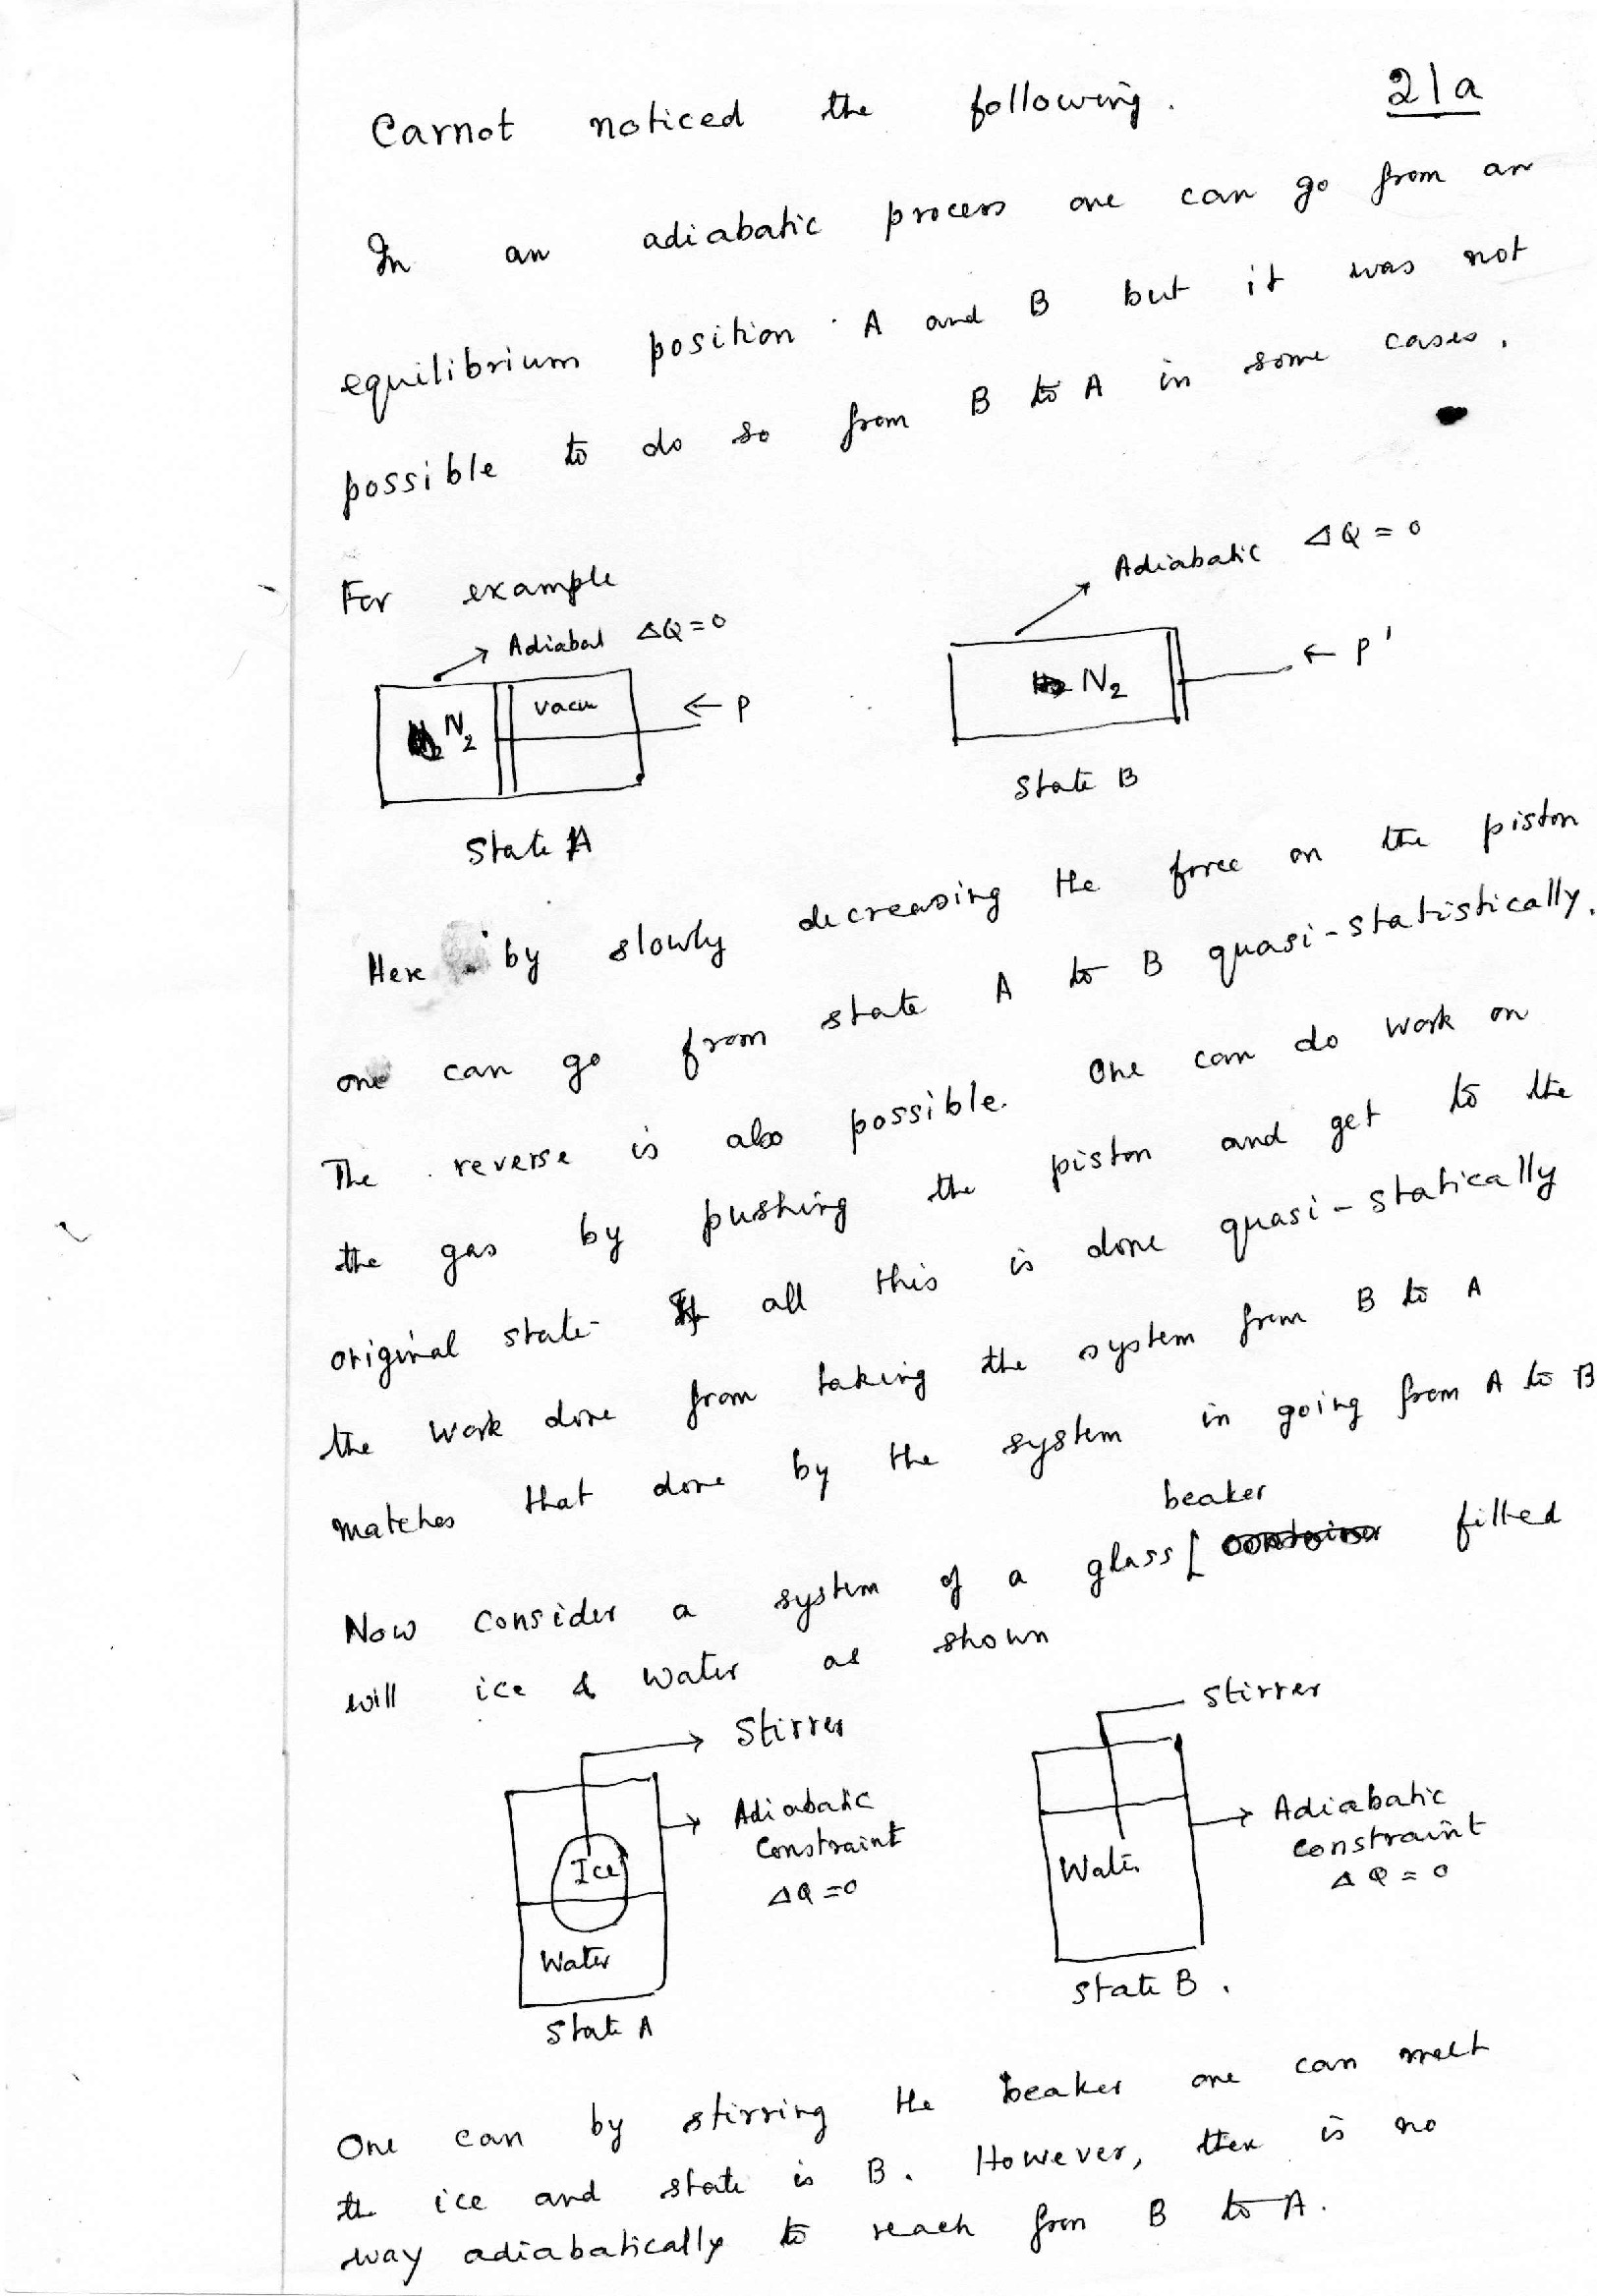 21a
Carnot noticed the following.
In an adiabatic process one can go from an
equilibrium position A and B but it was not
possible to do so from B to A in some cases.
For example
Adiabat ΔQ=0
N₂
vacu
← P
State A
Adiabatic ΔQ = 0
N₂
← P'
State B
Here by slowly decreasing the force on the piston
one can go from state A to B quasi-statistically.
The reverse is also possible. One can do work on
the gas by pushing the piston and get to the
original state. If all this is done quasi-statically
the work done from taking the system from B to A
matches that done by the system in going from A to B
beaker
Now consider a system of a glass [ container filled
will ice & water as shown
Stirrer
Adiabatic
Constraint
ΔQ=0
Ice
Water
State A
Stirrer
Adiabatic
Constraint
ΔQ=0
Water
State B.
One can by stirring the beaker one can melt
the ice and state is B. However, ther is no
way adiabatically to reach from B to A.